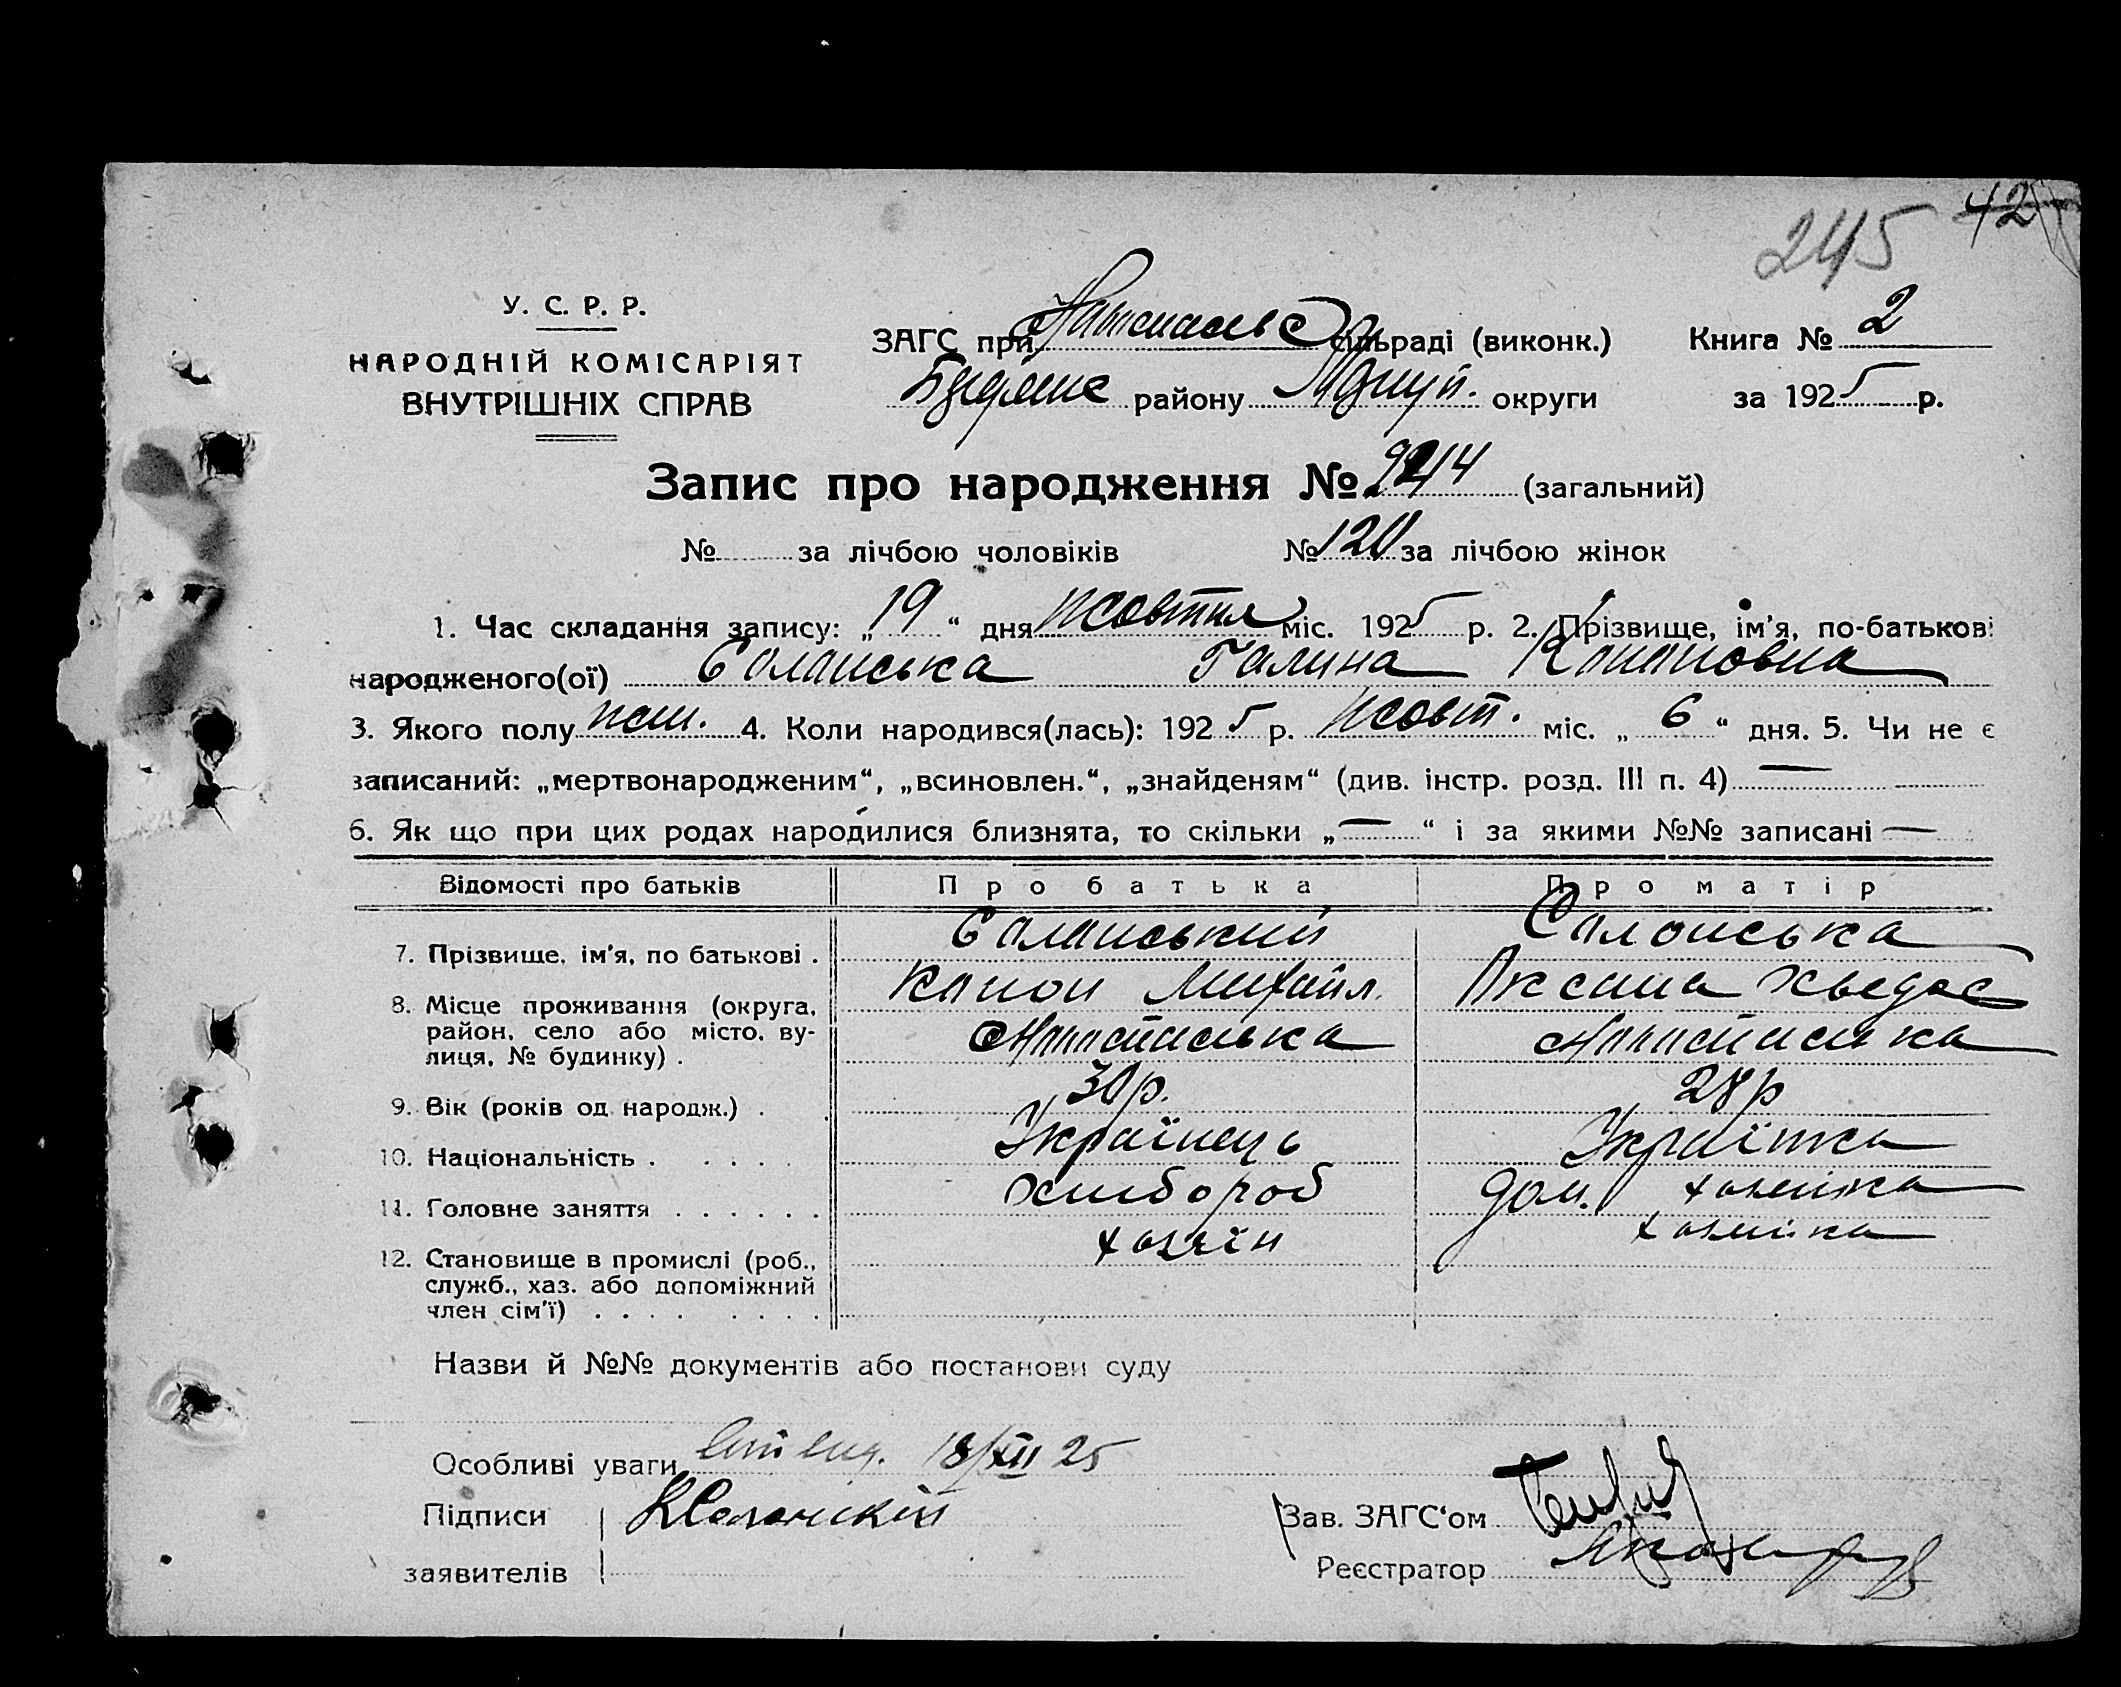 42
245
У. С. Р. Р.
НАРОДНІЙ КОМІСАРІЯТ
ВНУТРІШНІХ СПРАВ
ЗАГС при сільраді (виконк.) Книга № 2
району округи за 1925 р.
Запис про народження № (загальний)
№ за лічбою чоловіків № 120 за лічбою жінок
1. Час складання запису: „19“ дня жовтня міс. 1925 р. 2. Прізвище, ім'я, по-батькові
народженого(ої) Солонська Галина Кононовна
3. Якого полу жін. 4. Коли народився(лась): 1925 р. жовт. міс. „6“ дня. 5. Чи не є
записаний: „мертвонародженим“, „всиновлен.“, „знайденям“ (див. інстр. розд. III п. 4) —
6. Як що при цих родах народилися близнята, то скільки „—“ і за якими №№ записані —
Відомості про батьків Про батька Про матір
7. Прізвище, ім'я, по батькові . Солонський Солонська
Конон Михайл. Оксана
8. Місце проживання (округа, район, село або місто, вулиця, № будинку) .
9. Вік (років од народж.) . 30 р. 28 р
10. Національність . . . . . Українець Українка
11. Головне заняття . . . . . . Хлібороб дом. хозяйка
12. Становище в промислі (роб., служб., хаз. або допоміжний член сім'ї) . . . . . . . . хозяїн хозяйка
Назви й №№ документів або постанови суду
Особливі уваги 18/XII 25
Підписи заявителів К Солонский
Зав. ЗАГС'ом
Реєстратор